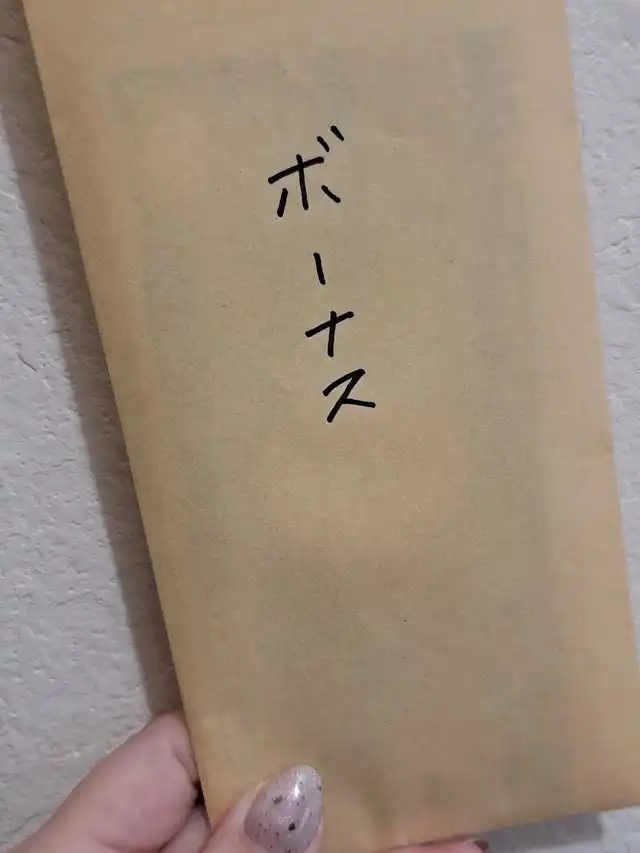 ボーナス